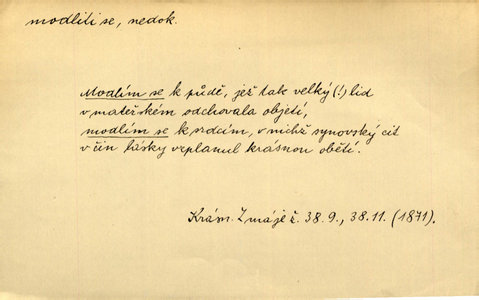 modliti se, nedok.
Modlím se k půdě, jež tak velký (!) lid
v mateřském odchovala objetí,
modlím se k srdcím, v nichž synovský cit
v čin lásky vzplanul krásnou obětí.
Krám. Z máje č. 38.9., 38.11. (1871).